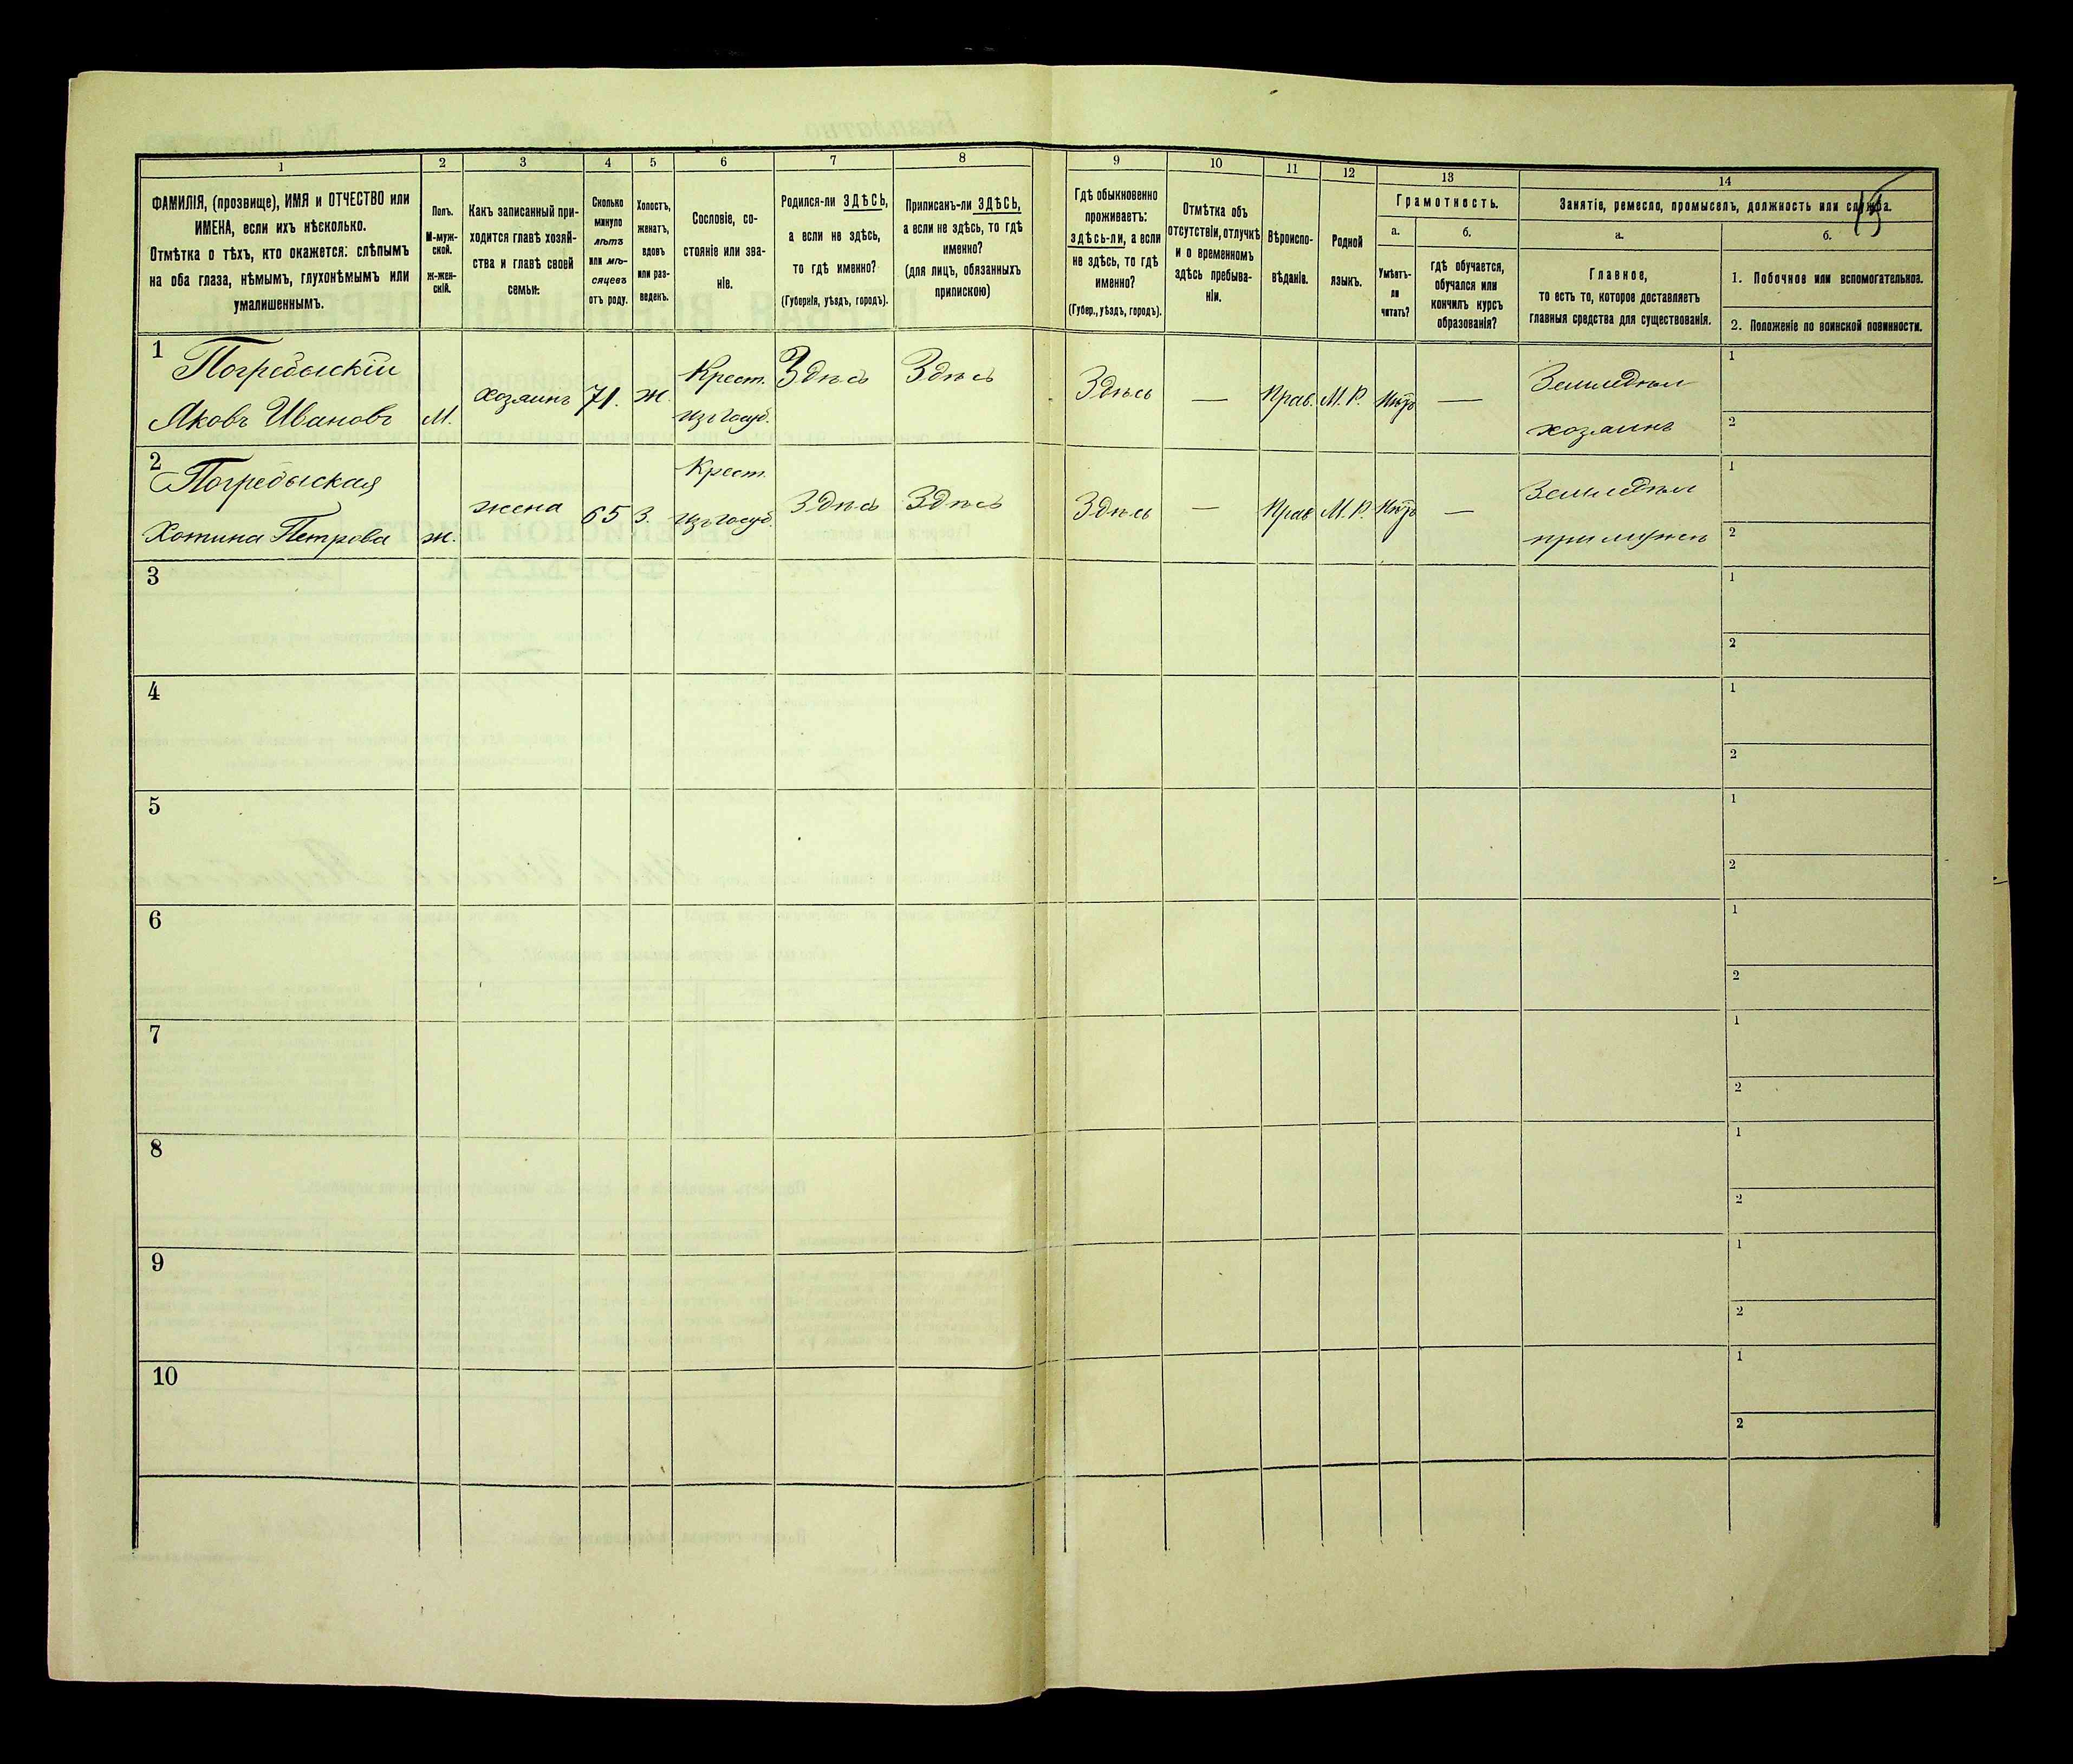 1 2 3 4 5 6 7 8 9 10 11 12 13 14
ФАМИЛІЯ, (прозвище), ИМЯ и ОТЧЕСТВО или
ИМЕНА, если ихъ нѣсколько.
Отмѣтка о тѣхъ, кто окажется: слѣпымъ
на оба глаза, нѣмымъ, глухонѣмымъ или
умалишеннымъ.
Полъ.
М-муж-
ской.
ж-жен-
скій.
Какъ записанный при-
ходится главѣ хозяй-
ства и главѣ своей
семьи.
Сколько
минуло
лѣтъ
или мѣ-
сяцевъ
отъ роду.
Холостъ,
женатъ,
вдовъ
или раз-
веденъ.
Сословіе, со-
стояніе или зва-
ніе.
Родился-ли ЗДѢСЬ,
а если не здѣсь,
то гдѣ именно?
(Губернія, уѣздъ, городъ).
Приписанъ-ли ЗДѢСЬ,
а если не здѣсь, то гдѣ
именно?
(для лицъ, обязанныхъ
припискою)
Гдѣ обыкновенно
проживаетъ:
здѣсь-ли, а если
не здѣсь, то гдѣ
именно?
(Губер., уѣздъ, городъ).
Отмѣтка объ
отсутствіи, отлучкѣ
и о временномъ
здѣсь пребыва-
ніи.
Вѣроиспо-
вѣданіе.
Родной
языкъ.
Грамотность.
а.
Умѣетъ-
ли
читать?
б.
гдѣ обучается,
обучался или
кончилъ курсъ
образованія?
Занятіе, ремесло, промыселъ, должность или служба.
15
а.
Главное,
то есть то, которое доставляетъ
главныя средства для существованія.
б.
1. Побочное или вспомогательное.
2. Положеніе по воинской повинности.
1
Погребыскій
Яковъ Ивановъ
М.
хозяинъ
71.
ж.
Крест.
изъ госуд.
Здѣсь
Здѣсь
Здѣсь
—
Прав.
М. Р.
Нѣтъ
—
Земледѣл
хозяинъ
1
2
2
Погребыская
Хотина Петрова
ж.
жена
65
З.
Крест.
изъ госуд.
Здѣсь
Здѣсь
Здѣсь
—
Прав
М. Р.
Нѣтъ
—
Земледѣл
при мужѣ
1
2
3
1
2
4
1
2
5
1
2
6
1
2
7
1
2
8
1
2
9
1
2
10
1
2